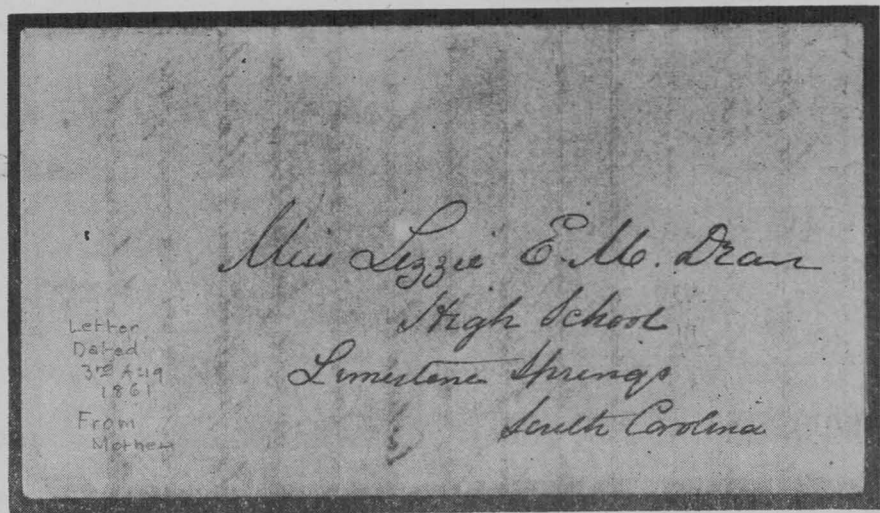 Miss Lizzie E. M. Dean
High School
Limestone Springs
South Carolina
Letter
Dated
3rd Aug
1861
From
Mother